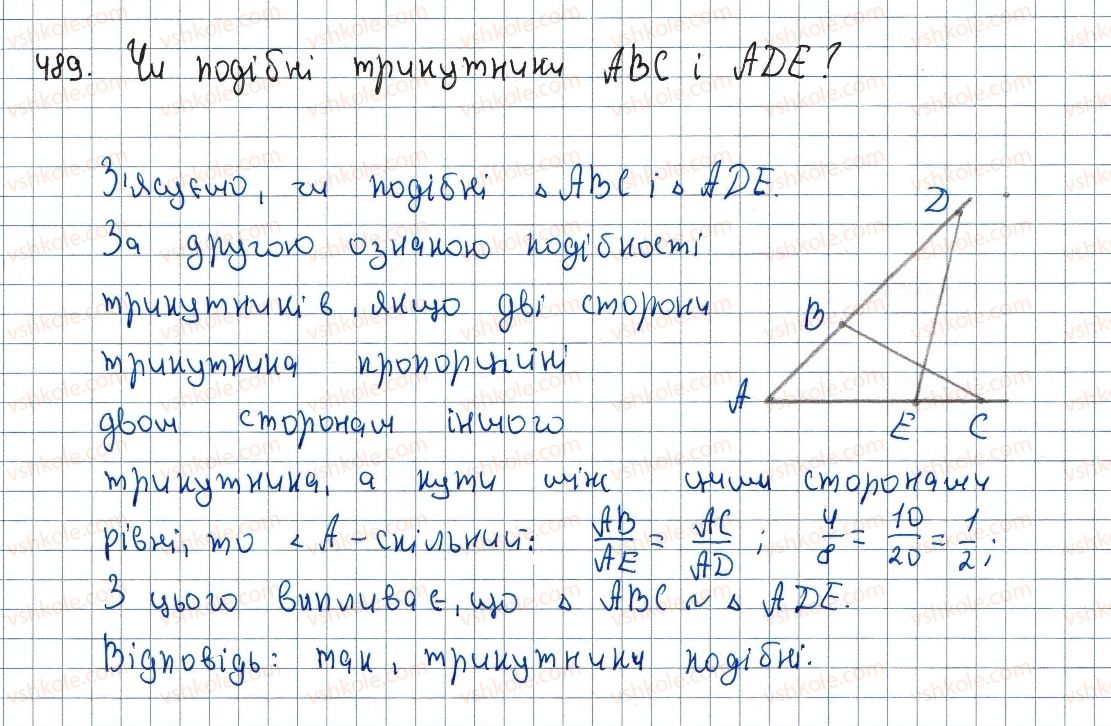 489. Чи подібні трикутники ABC і ADE?
З'ясуємо, чи подібні ▵ ABC і ▵ ADE.
За другою ознакою подібності
трикутників, якщо дві сторони
трикутника пропорційні
двом сторонам іншого
трикутника, а кути між цими сторонами
рівні, то ∠ A - спільний: AB/AE = AC/AD ; 4/8 = 10/20 = 1/2;
З цього випливає, що ▵ ABC ~ ▵ ADE.
Відповідь: так, трикутники подібні.
D
B
A
E C
vshkole.com